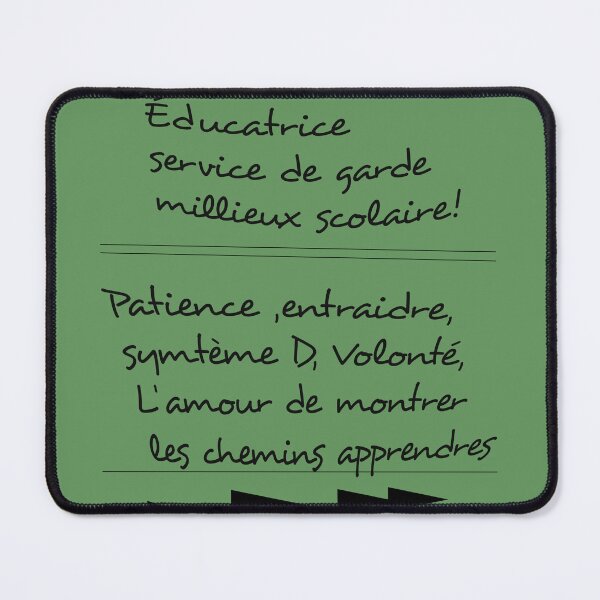 Éducatrice
service de garde
millieux scolaire!
Patience ,entraidre,
symtème D, Volonté,
L'amour de montrer
les chemins apprendres